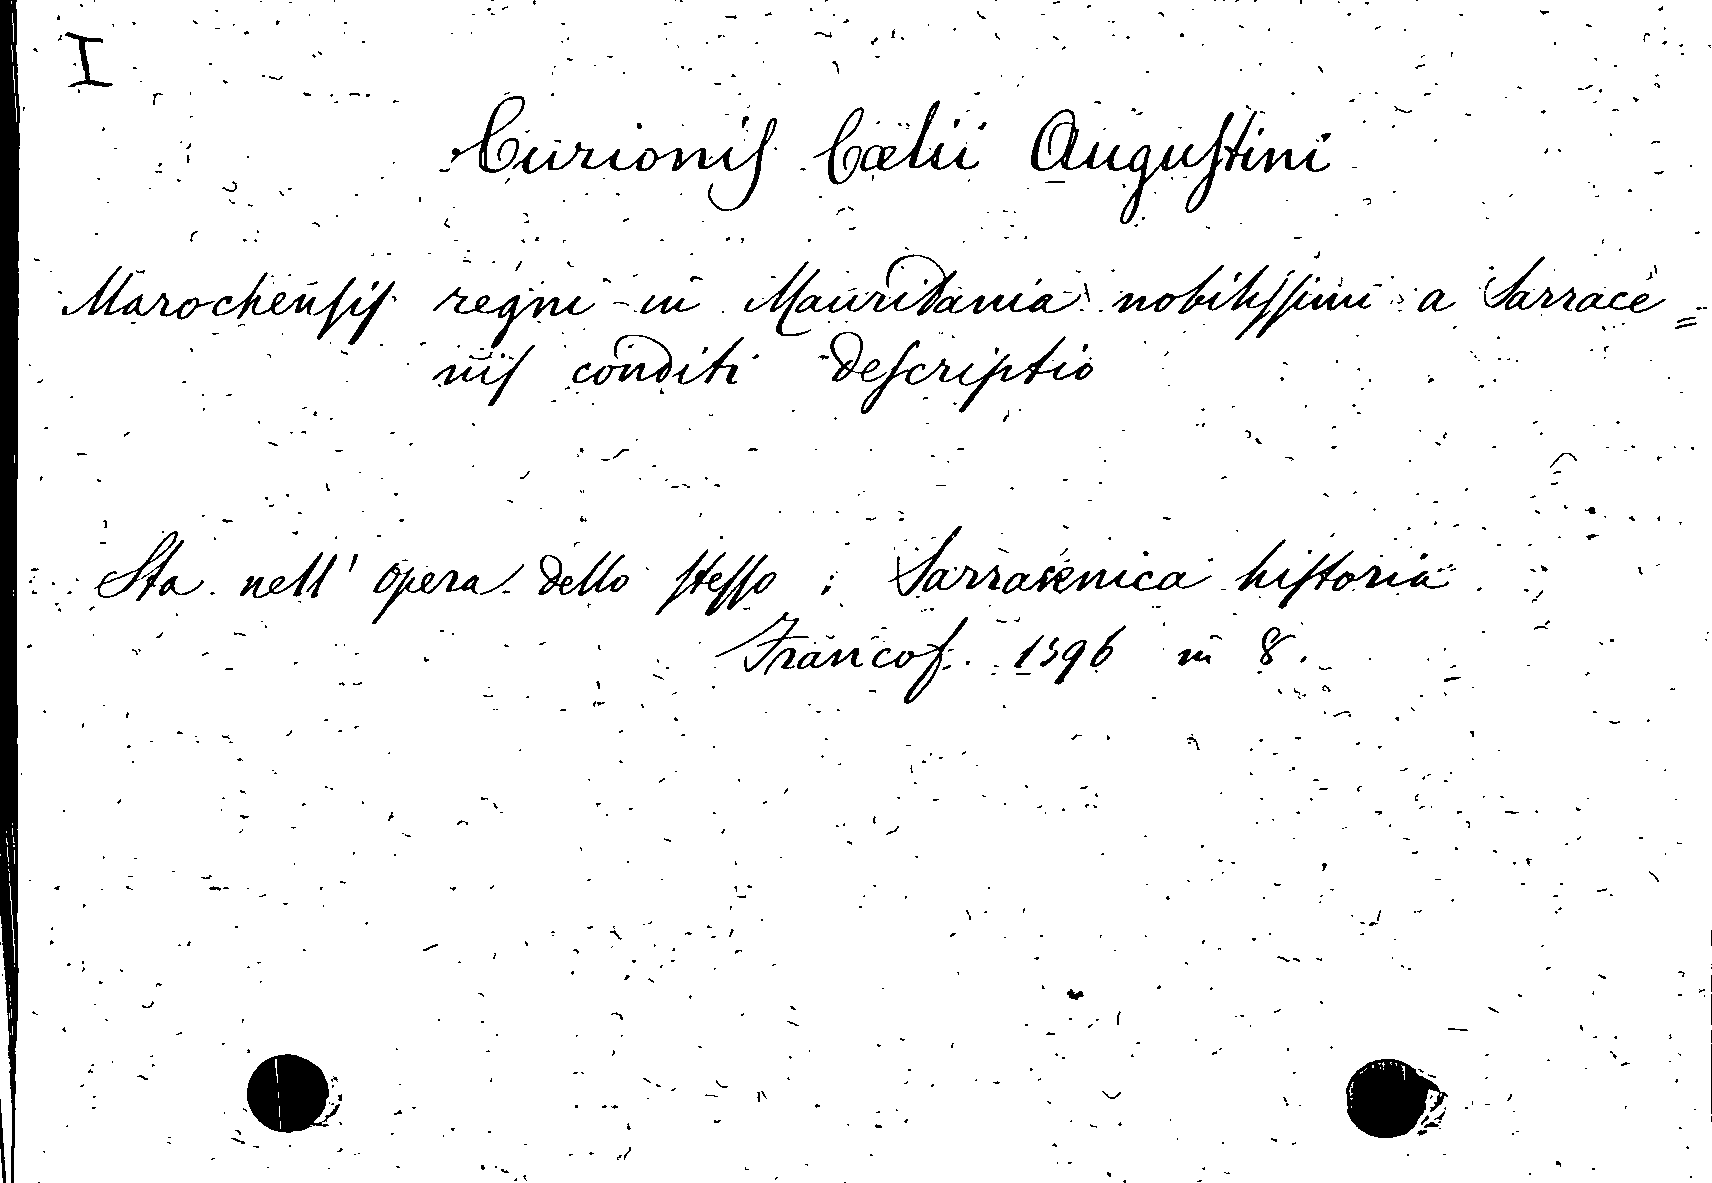 I
Curionis Cælii Augustini
Marochensis regni in Mauritania nobilissimi a Sarrace=
nis conditi descriptio
Sta nell' opera dello stesso: Sarracenica historia
Francof. 1596 in 8.